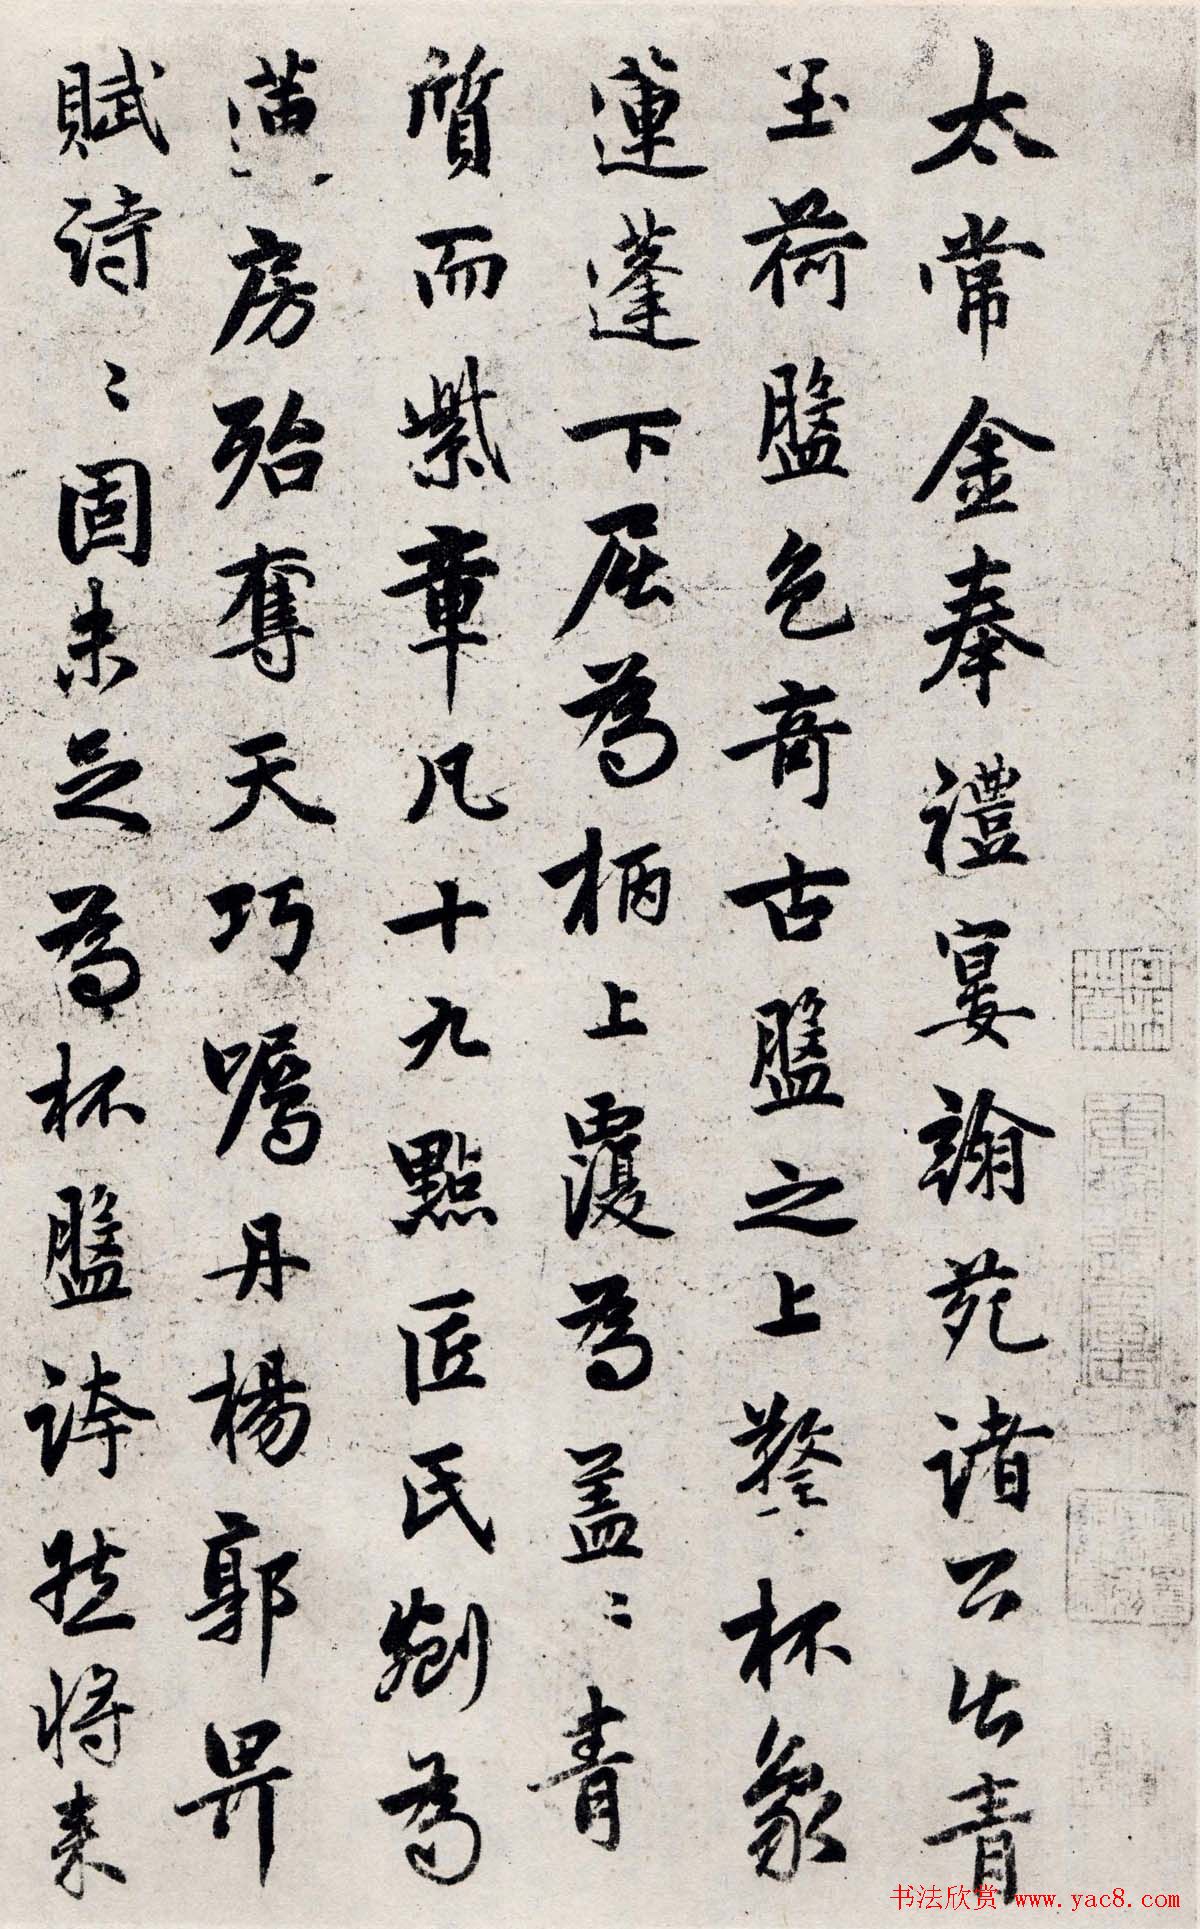 太常金奉禮宴翰苑諸公出青
玉荷盤色奇古盤之上擎杯象
蓮蓬下屈為柄上覆為蓋〻青
質而紫章凡十九點匠氏剜為
蓮房殆奪天巧嘱丹楊郭畀
賦詩〻固未足為杯盤誇然将来
书法欣赏 www.yac8.com